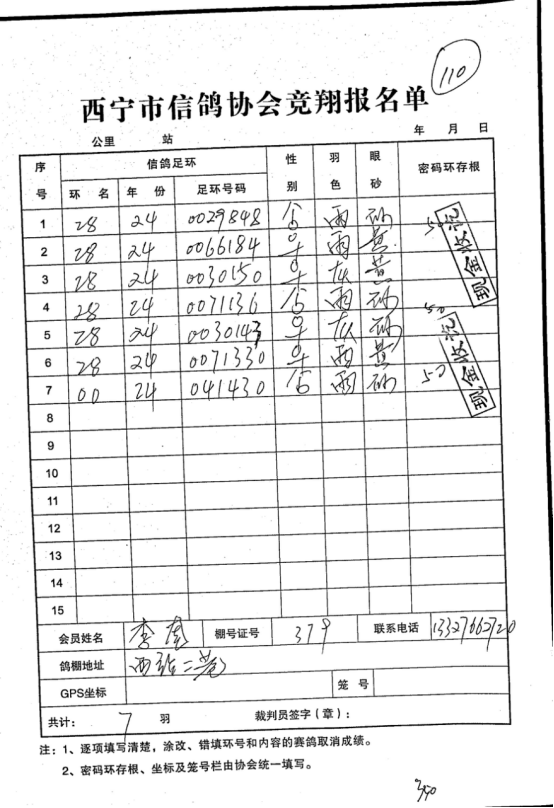 110
西宁市信鸽协会竞翔报名单
公里 站 年 月 日
序号 信鸽足环 性别 羽色 眼砂 密码环存根
环 名 年 份 足环号码
1 28 24 0029848 雨 砂 50
2 28 24 0066184 雨 黄
3 28 24 0030150 灰 黄
现金收讫
4 28 24 0071136 雨 砂 50
5 28 24 0030143 灰 砂
6 28 24 0071330 雨 黄
7 00 24 041430 雨 砂 50
现金收讫
8
9
10
11
12
13
14
15
会员姓名 李 棚号证号 379 联系电话 13327662720
鸽棚地址 西
GPS坐标 笼 号
共计： 7 羽 裁判员签字（章）：
注：1、逐项填写清楚，涂改、错填环号和内容的赛鸽取消成绩。
2、密码环存根、坐标及笼号栏由协会统一填写。
350